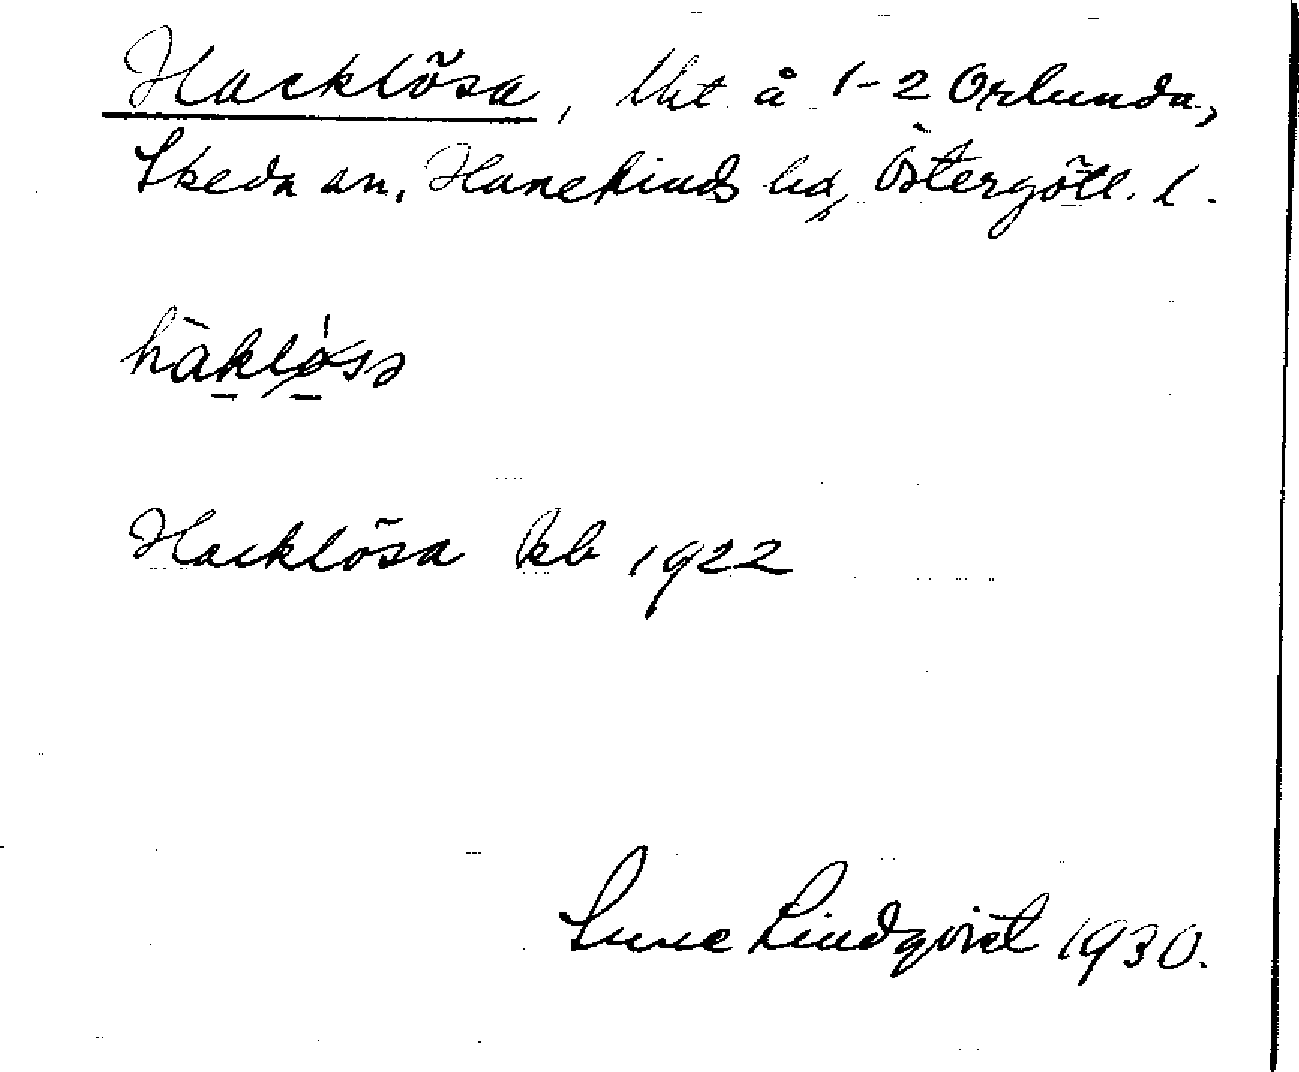 Hacklösa, Uht å 1-2 Orlunda,
Skeda sn, Hanekinds hd, Östergötl. l.
hàklø̀sa
Hacklösa kb 1922
Sune Lindqvist 1930.